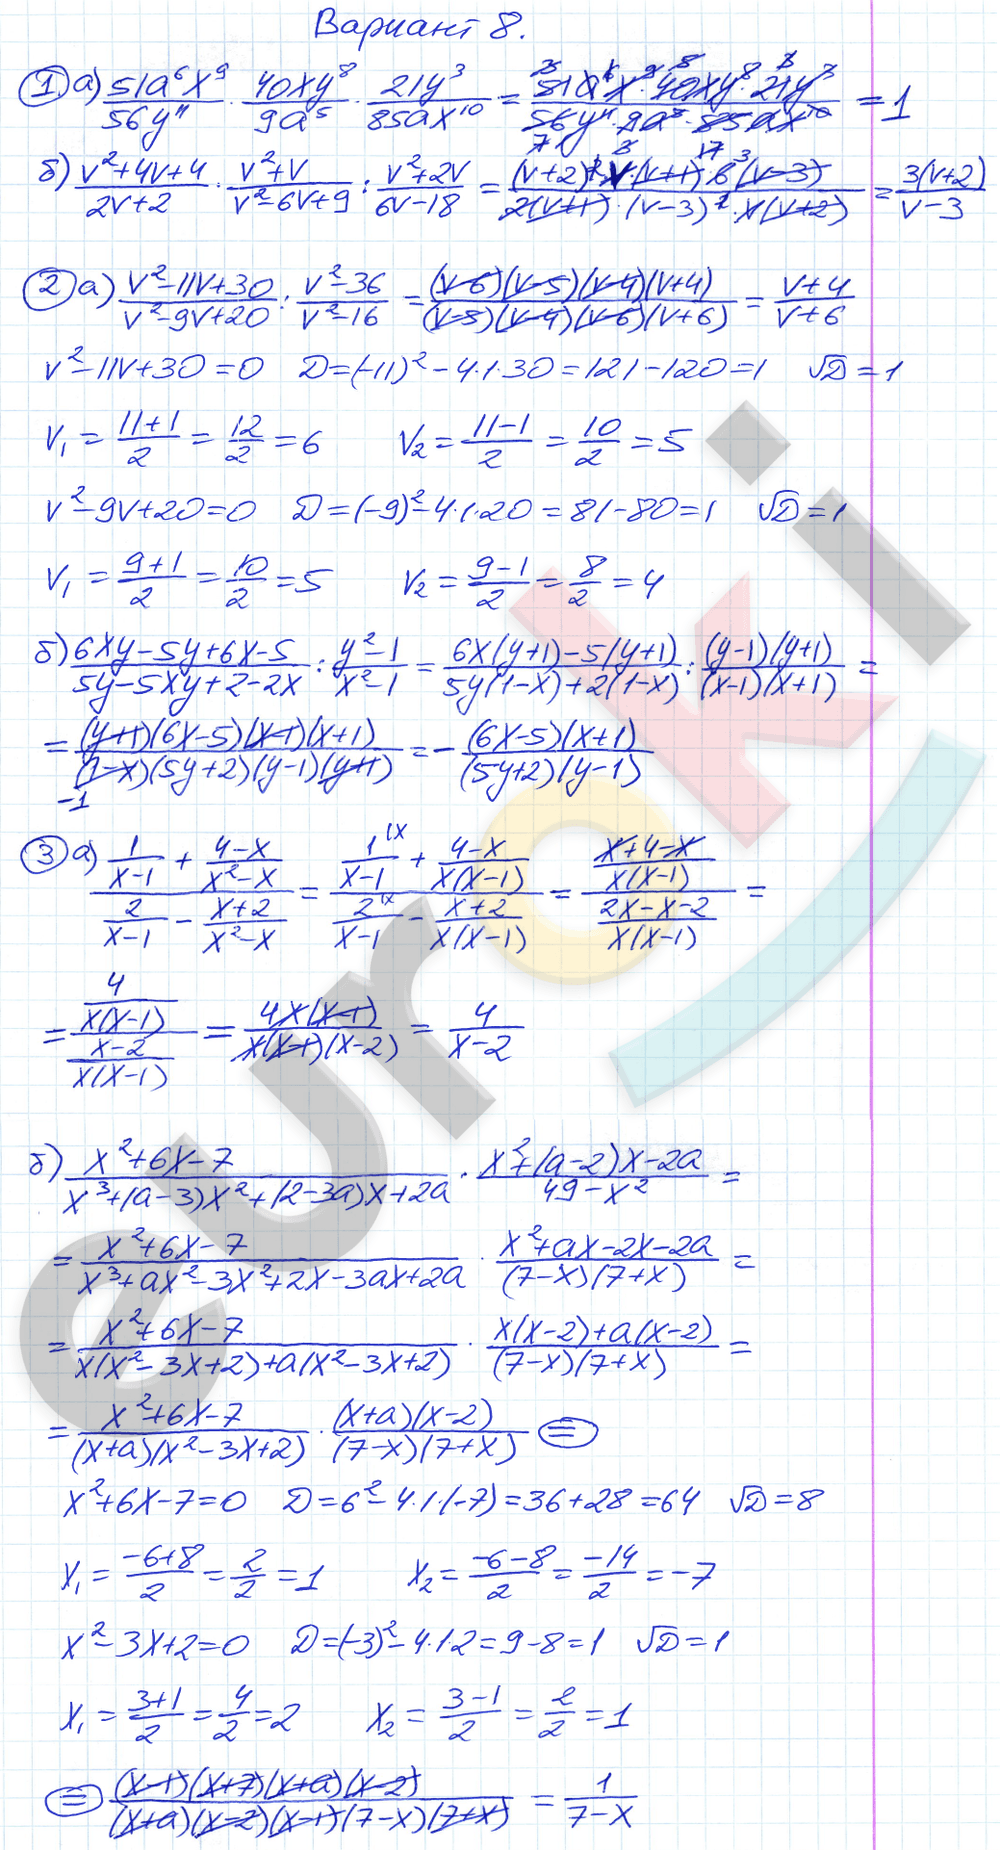 Вариант 8.
① а) 51a⁶x⁹/56y¹¹ · 40xy⁸/9a⁵ · 21y³/85ax¹⁰ = 51a⁶x⁹·40xy⁸·21y³/56y¹¹·9a⁵·85ax¹⁰ = 1
б) v²+4v+4/2v+2 · v²+v/v²-6v+9 : v²+2v/6v-18 = (v+2)²·v(v+1)·6(v-3)/2(v+1)·(v-3)²·v(v+2) = 3(v+2)/v-3
② а) v²-11v+30/v²-9v+20 : v²-36/v²-16 = (v-6)(v-5)(v-4)(v+4)/(v-5)(v-4)(v-6)(v+6) = v+4/v+6
v²-11v+30=0 D=(-11)²-4·1·30=121-120=1 √D=1
v₁=11+1/2=12/2=6 v₂=11-1/2=10/2=5
v²-9v+20=0 D=(-9)²-4·1·20=81-80=1 √D=1
v₁=9+1/2=10/2=5 v₂=9-1/2=8/2=4
б) 6xy-5y+6x-5/5y-5xy+2-2x : y²-1/x²-1 = 6x(y+1)-5(y+1)/5y(1-x)+2(1-x) : (y-1)(y+1)/(x-1)(x+1) =
= (y+1)(6x-5)(x-1)(x+1)/(1-x)(5y+2)(y-1)(y+1) = - (6x-5)(x+1)/(5y+2)(y-1)
-1
③ а) 1/x-1 + 4-x/x²-x / 2/x-1 - x+2/x²-x = 1\x/x-1 + 4-x/x(x-1) / 2\x/x-1 - x+2/x(x-1) = x+4-x/x(x-1) / 2x-x-2/x(x-1) =
= 4/x(x-1) / x-2/x(x-1) = 4x(x-1)/x(x-1)(x-2) = 4/x-2
б) x²+6x-7/x³+(a-3)x²+(2-3a)x+2a · x²+(a-2)x-2a/49-x² =
= x²+6x-7/x³+ax²-3x²+2x-3ax+2a · x²+ax-2x-2a/(7-x)(7+x) =
= x²+6x-7/x(x²-3x+2)+a(x²-3x+2) · x(x-2)+a(x-2)/(7-x)(7+x) =
= x²+6x-7/(x+a)(x²-3x+2) · (x+a)(x-2)/(7-x)(7+x) =
x²+6x-7=0 D=6²-4·1·(-7)=36+28=64 √D=8
x₁=-6+8/2=2/2=1 x₂=-6-8/2=-14/2=-7
x²-3x+2=0 D=(-3)²-4·1·2=9-8=1 √D=1
x₁=3+1/2=4/2=2 x₂=3-1/2=2/2=1
= (x-1)(x+7)(x+a)(x-2)/(x+a)(x-2)(x-1)(7-x)(7+x) = 1/7-x
euroki